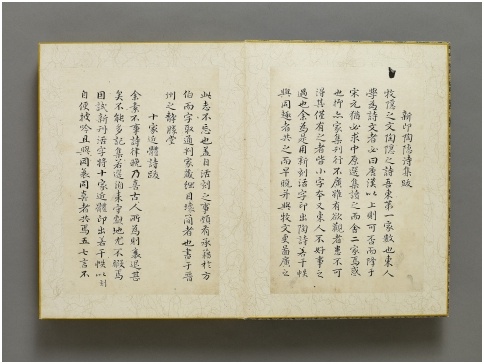 新印陶隱詩集跋
牧隱之文陶隱之詩吾東第一家數也東人
學爲詩文者必曰唐漢以上則可否而降于
宋元猶必求中原選集讀之而舍二家焉惑
也 家集刊行不廣雖有欲觀者患不可
得其僅有之者皆小字本又東人不好事之
過也余爲是用新刻活字印出陶詩若干帙
與同趣者共之而早晚并與牧文更啚廣之
此志不忘也盖自活刻之事頗有承藉於方
伯而字取通利家藏 者也書于晋
州之靜勝堂
十家近體詩跋
余素不事詩律晚乃喜古人所爲則衰退甚
矣不能多記集若選 觀地尤不暇爲
因試新刋活字將十家近體印出若干帙以
自便披吟且與同慕同喜者共焉五七言不